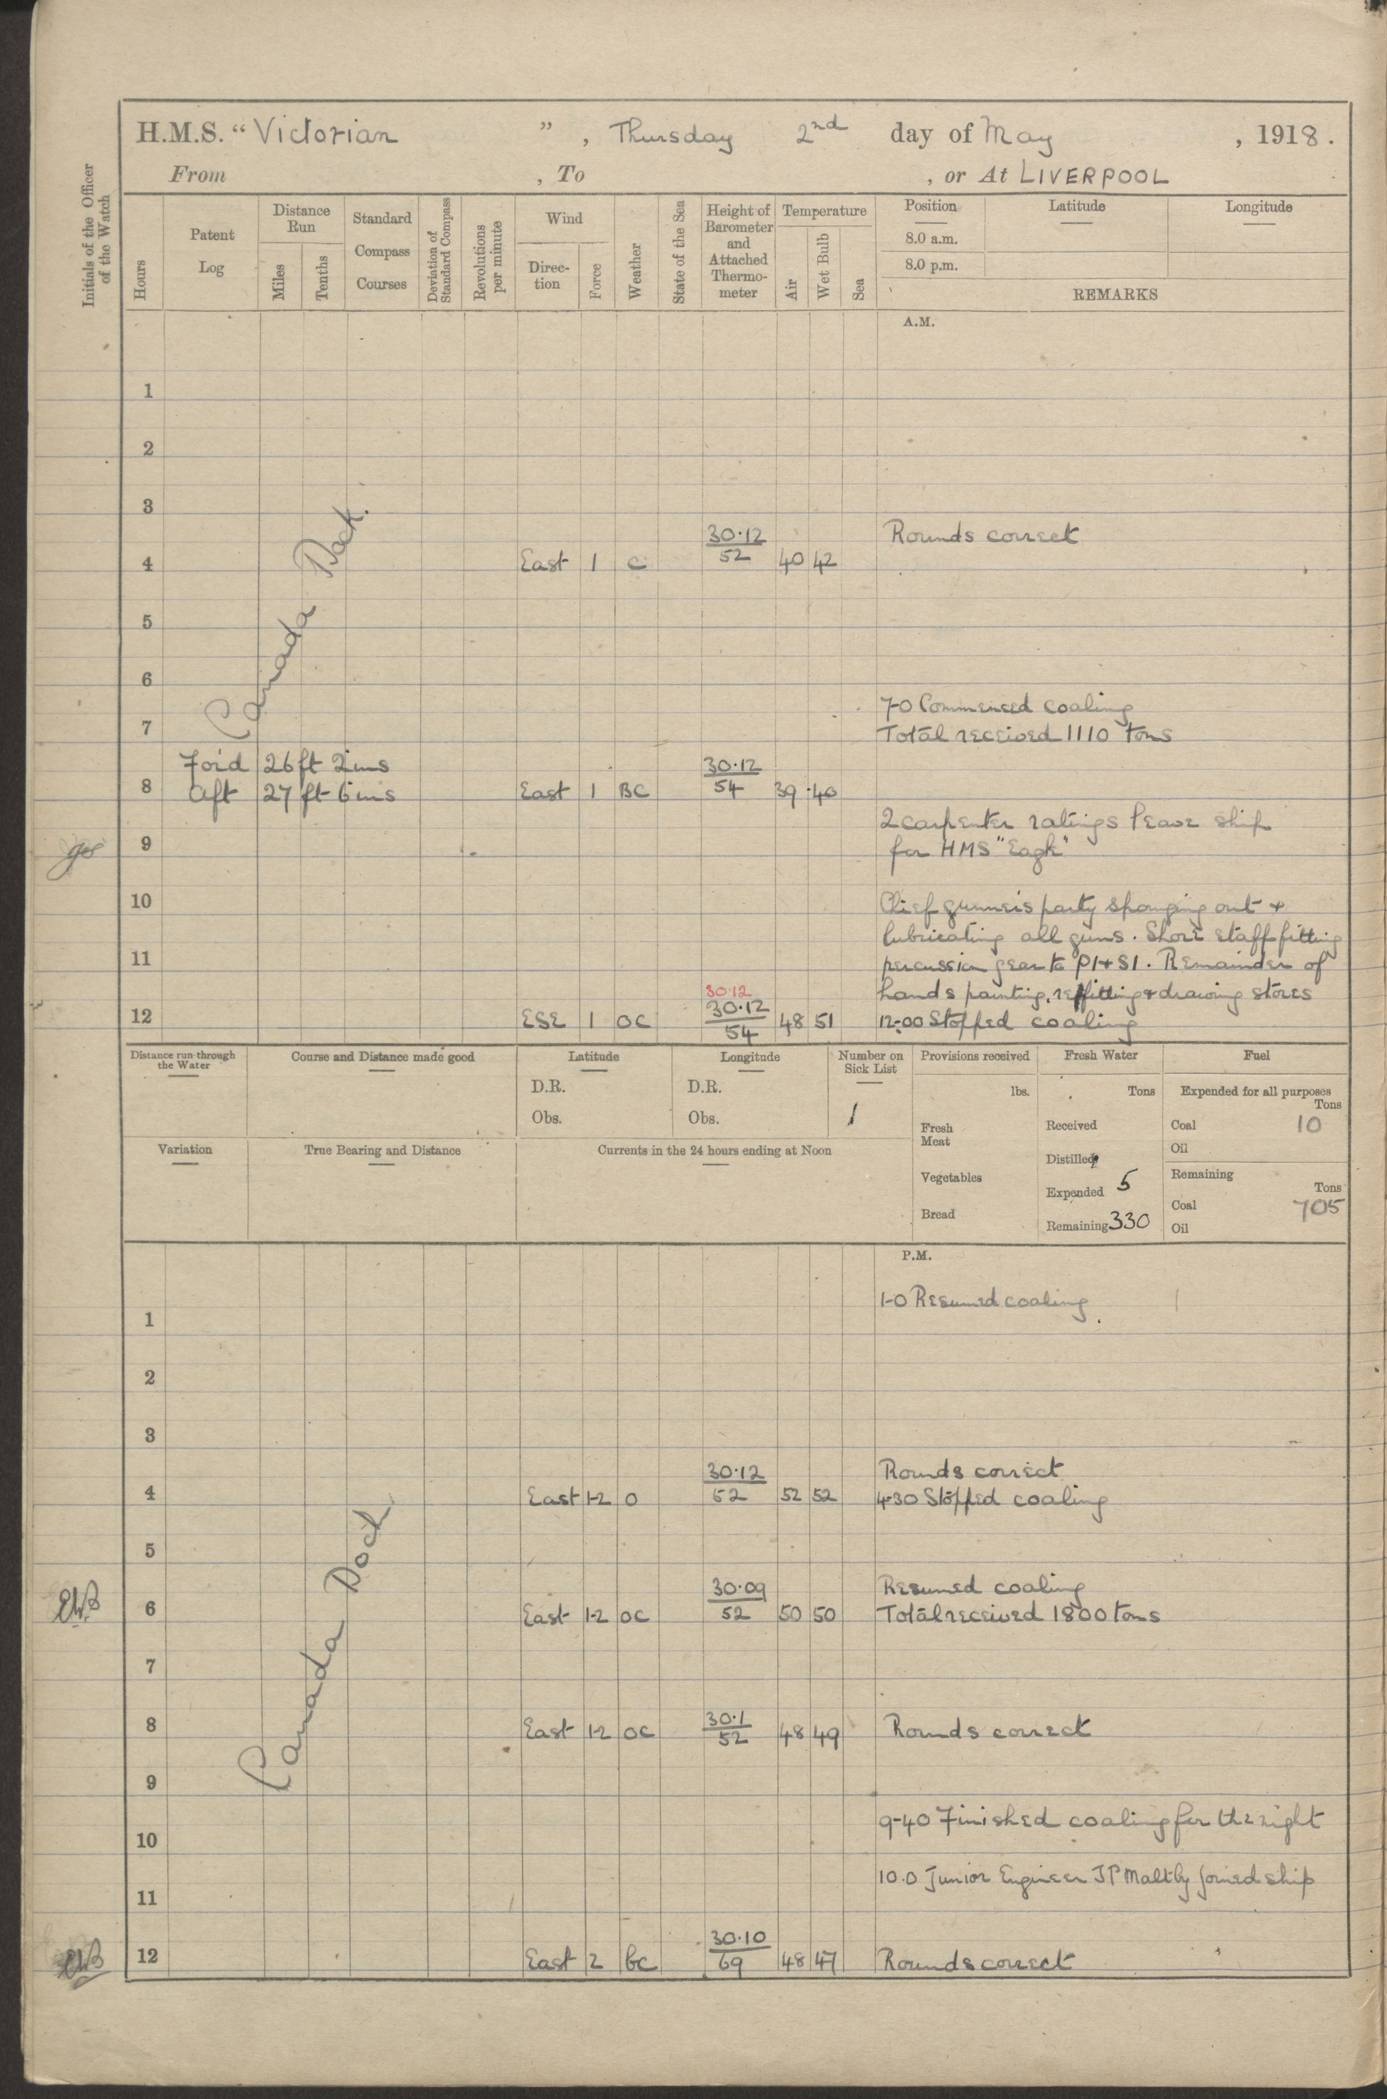 H.M.S. "Victorian", Thursday 2nd day of May, 1918.
From , To , or At LIVERPOOL
Initials of the Officer of the Watch
Hours
Patent Log
Distance Run
Miles
Tenths
Standard Compass Courses
Deviation of Standard Compass
Revolutions per minute
Wind
Direc-tion
Force
Weather
State of the Sea
Height of Barometer and Attached Thermo-meter
Temperature
Air
Wet Bulb
Sea
Position Latitude Longitude
8.0 a.m.
8.0 p.m.
REMARKS
A.M.
1
2
3
Rounds correct
4 East 1 C 30.12 52 40 42
Canada Dock.
5
6
7-0 Commenced coaling
7 Total received 1110 tons
For'd 26 ft 2 ins
8 Aft 27 ft 6 ins East 1 BC 30.12 54 39 40
2 carpenter ratings leave ship
9 for HMS "Eagle"
10 Chief gunner's party sponging out +
lubricating all guns. Shore staff fitting
11 percussion gear to P1 + S1. Remainder of
30.12 hands painting, refitting + drawing stores
12 ESE 1 OC 30.12 54 48 51 12-00 Stopped coaling
Distance run through the Water
Course and Distance made good
Latitude
D.R.
Obs.
Longitude
D.R.
Obs.
Number on Sick List
1
Provisions received
lbs.
Fresh Meat
Vegetables
Bread
Fresh Water
Tons
Received
Distilled
Expended 5
Remaining 330
Fuel
Expended for all purposes
Tons
Coal 10
Oil
Remaining
Tons
Coal 705
Oil
Variation
True Bearing and Distance
Currents in the 24 hours ending at Noon
P.M.
1-0 Resumed coaling
1
2
3
Rounds correct
4 East 1-2 O 30.12 52 52 52 4-30 Stopped coaling
Canada Dock
5
Resumed coaling
EWB 6 East 1-2 OC 30.09 52 50 50 Total received 1800 tons
7
8 East 1-2 OC 30.1 52 48 49 Rounds correct
9
9-40 Finished coaling for the night
10
10.0 Junior Engineer JP Maltby joined ship
11
EWB 12 East 2 bc 30.10 69 48 47 Rounds correct